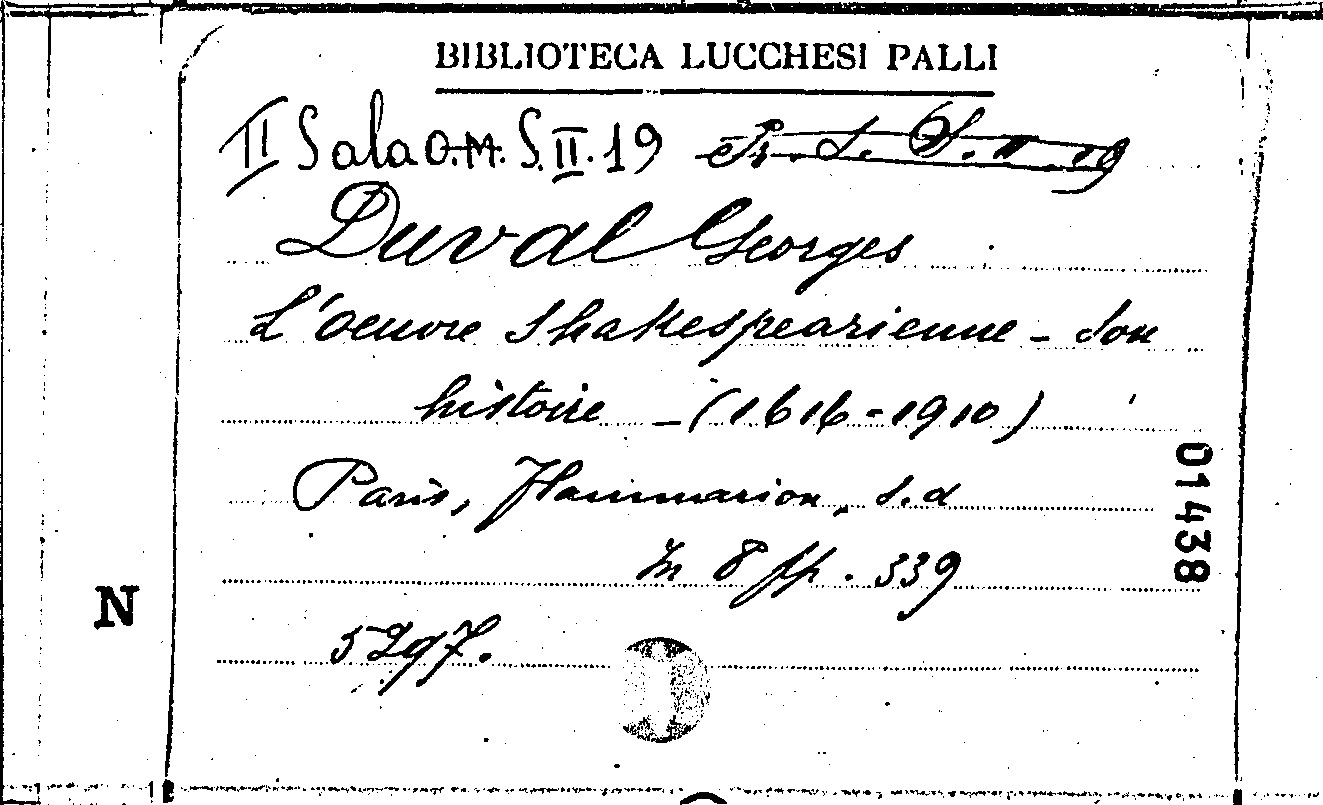 BIBLIOTECA LUCCHESI PALLI
II Sala O.M. S.II.19 Pr. S. S. II. 19
Duval Georges
L'oeuvre Shakespearienne - Son
histoire - (1616-1910)
Paris, Flammarion, s.d
In 8 pp. 339
5297.
01438
N